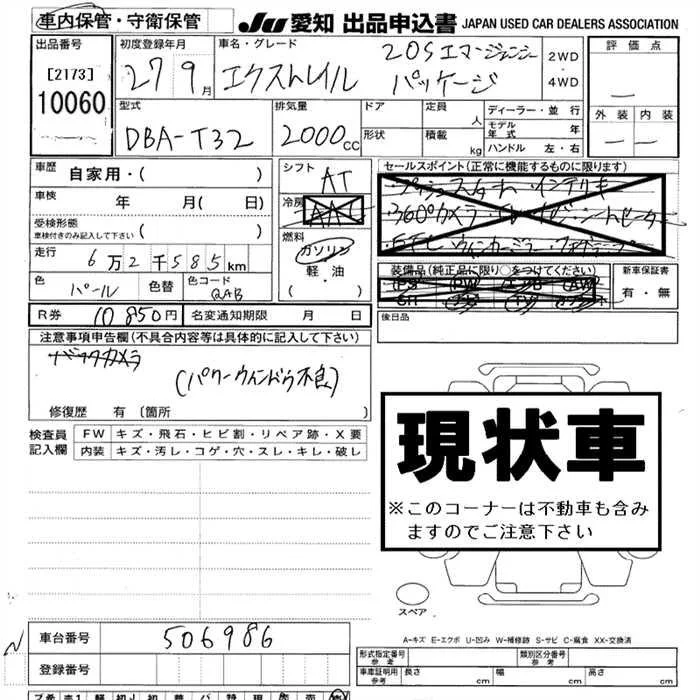 車内保管・守衛保管
JU 愛知 出品申込書 JAPAN USED CAR DEALERS ASSOCIATION
出品番号
[2173]
10060
初度登録年月
27 9月
車名・グレード
エクストレイル
20Sエマージェンシー
パッケージ
2WD
4WD
評価点
外装 内装
型式
DBA-T32
排気量
2000cc
ドア
形状
定員 人
積載 kg
ディーラー・並行
モデル年式 年
ハンドル 左・右
車歴 自家用・( )
車検 年 月( 日)
受検形態
車検付きのみ記入して下さい ( )
走行 6万2千585km
色 パール 色替 色コード QAB
シフト AT
冷房 AAC
燃料
ガソリン
軽・油
( ・ )
セールスポイント(正常に機能するものに限ります)
装備品(純正品に限り○をつけてください)
PS PW エアB AW
SR TV
新車保証書
有・無
R券 10850円 名変通知期限 月 日
後日品
注意事項申告欄(不具合内容等は具体的に記入して下さい)
バックカメラ
(パワーウィンドウ不良)
修復歴 有 (箇所 )
検査員記入欄
FW キズ・飛石・ヒビ割・リペア跡・X要
内装 キズ・汚レ・コゲ・穴・スレ・キレ・破レ
現状車
※このコーナーは不動車も含み
ますのでご注意下さい
スペア
A-キズ E-エクボ U-凹み W-補修跡 S-サビ C-腐食 XX-交換済
車台番号 506986
登録番号
形式指定番号 参考
類別区分番号 参考
車庫証明用 参考 長さ cm 幅 cm 高さ cm